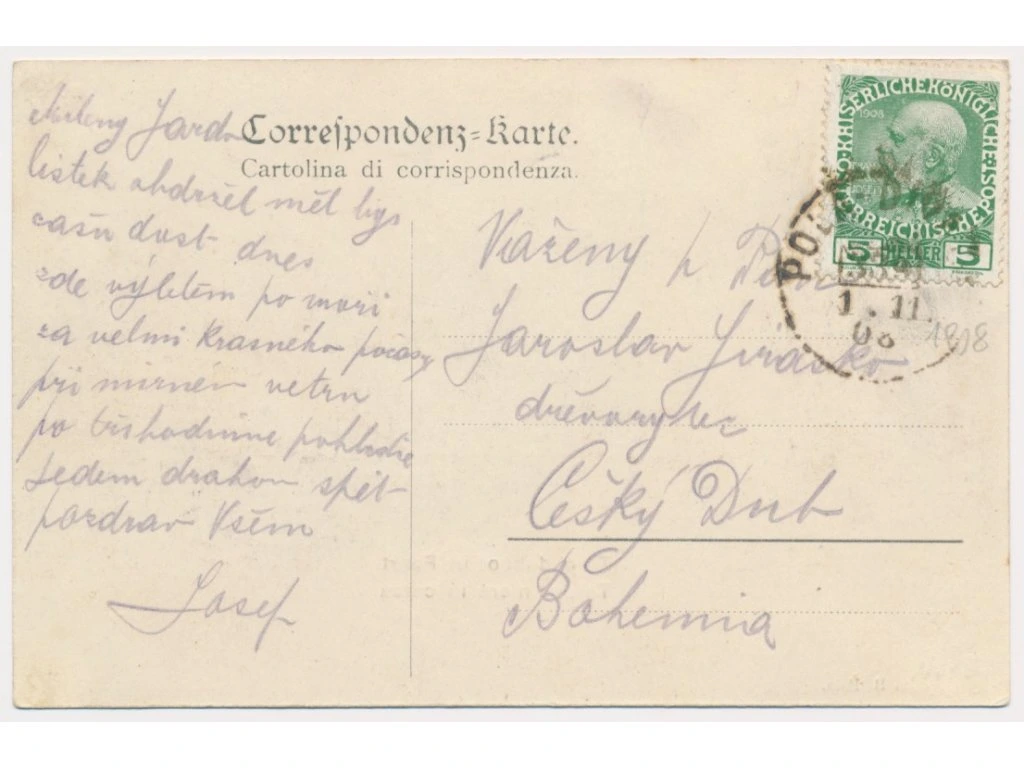 Milený Jardo
lístek obdržel měl bys
času dost dnes
zde výletem po moři
za velmi krásného počasy
při mírném vetru
po tříhodinné
jedem drahou spět
pozdrav Všem
Josef
Correſpondenz-Karte.
Cartolina di corrispondenza.
KAISERLICHE KÖNIGLICHE ÖSTERREICHISCHE POST
1908
5 HELLER 5
1. II
08
1908
Vážený p
Jaroslav Jirásko
dřevorytec
Český Dub
Bohemia